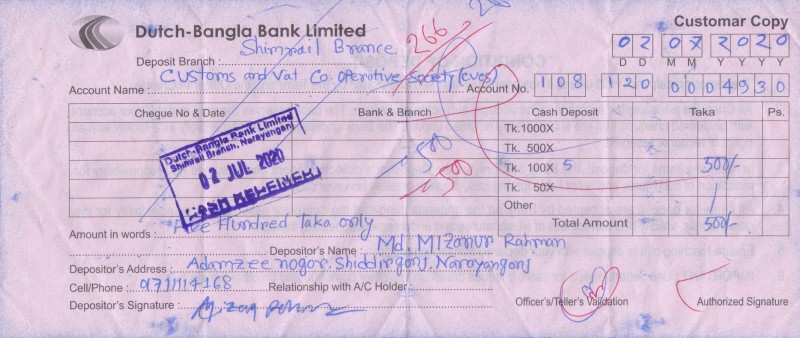 Dutch-Bangla Bank Limited
Customar Copy
266
Deposit Branch : Shimrail Brance
02 07 2020
D D M M Y Y Y Y
Account Name : Customs and Vat Co-operative Society (CVCS)
Account No. 108 120 0004930
Cheque No & Date Bank & Branch Cash Deposit Taka Ps.
Tk.1000X
Tk. 500X
Tk. 100X 5 500/-
Tk. 50X
Other
Total Amount 500/-
500
500
Dutch-Bangla Bank Limited
Shimrail Branch, Narayanganj
02 JUL 2020
CASH RECEIVED
Amount in words : Five Hundred Taka only
Depositor's Name : Md. Mizanur Rahman
Depositor's Address : Adamzee nogor, Shiddirgonj, Narayangonj
Cell/Phone : 01711114168 Relationship with A/C Holder :
Depositor's Signature :
Officer's/Teller's Validation
Authorized Signature